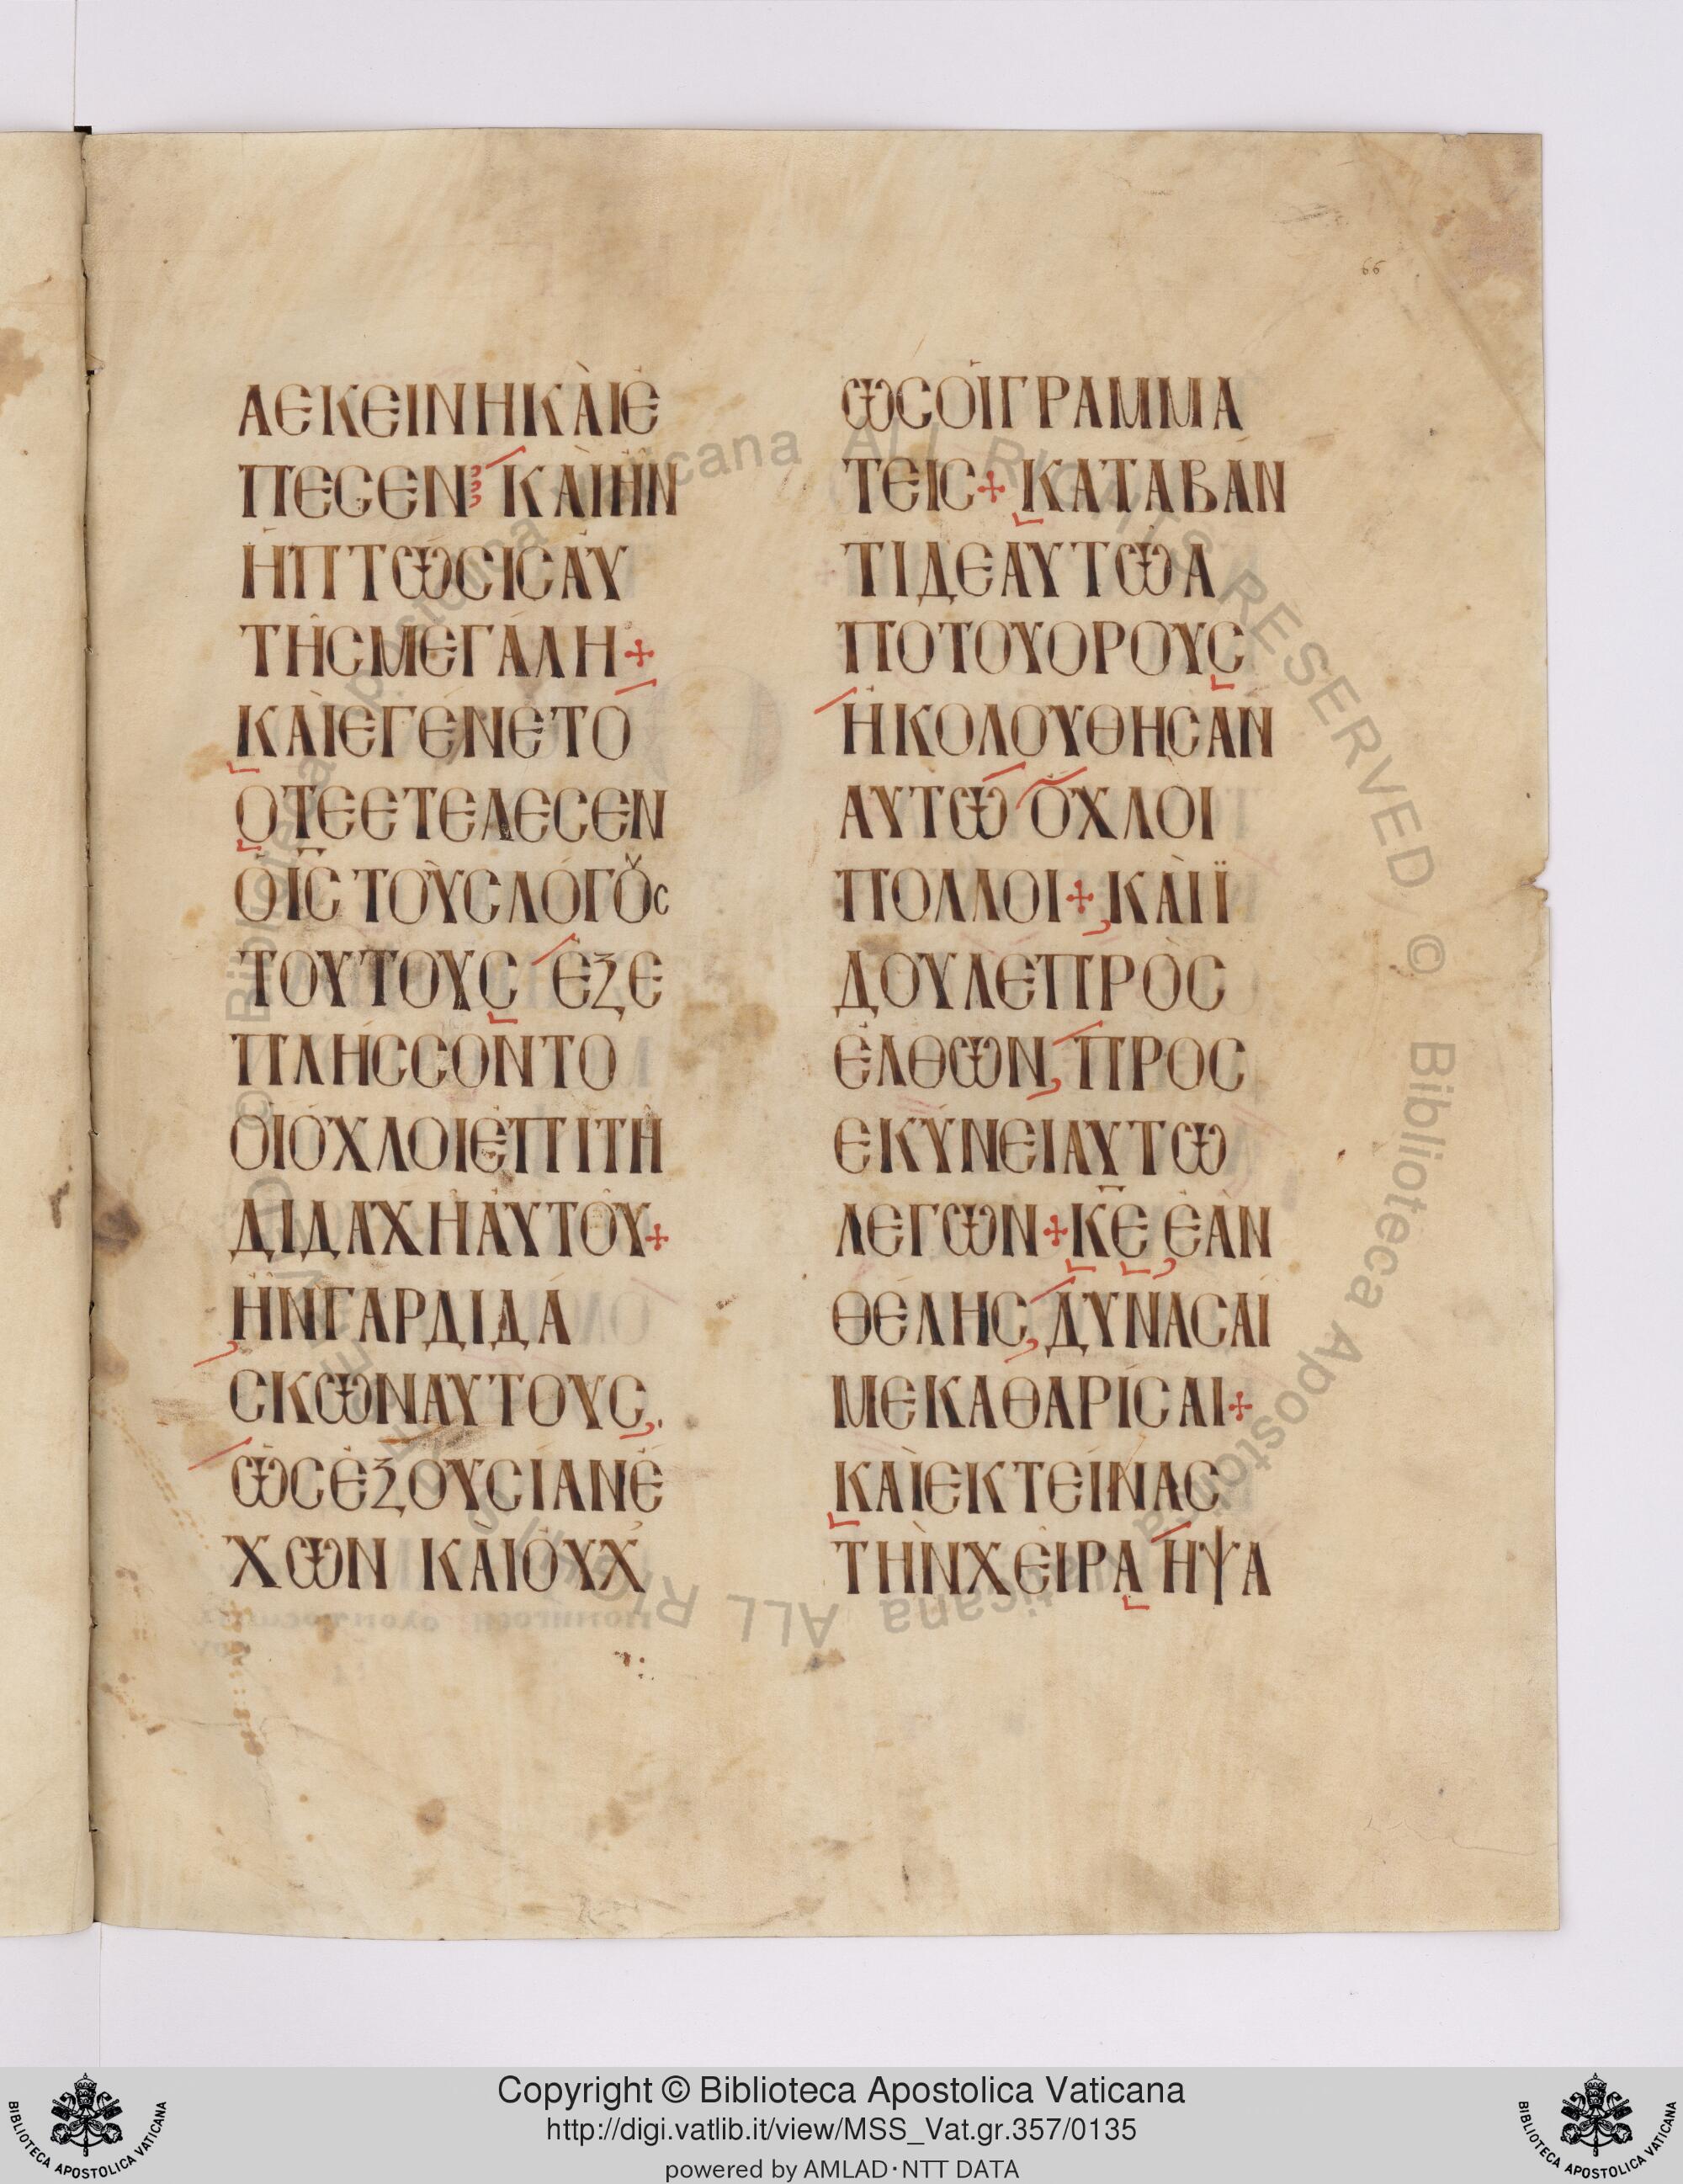 66
ΑΕΚΕΙΝΗΚΑῚἘ
ΠΕϹΕΝ ΚΑῚἮΝ
ἩΠΤΩ͂ϹΙϹΑΥ
ΤΗ͂ϹΜΕΓΆΛΗ+
ΚΑῚΕΓΈΝΕΤΟ
ὉΤΕΕΤΈΛΕϹΕΝ
ὉΙ̅Ϲ̅ ΤΟῪϹΛΌΓΟΥϹ
ΤΟΎΤΟΥϹ ἘΞΕ
ΠΛΉϹϹΟΝΤΟ
ΟἹΌΧΛΟΙἘΠΙΤΗ͂
ΔΙΔΑΧΗἈΥΤΟΥ͂+
ἮΝΓΑΡΔΙΔΆ
ϹΚΩΝΑΥΤΟΥϹ,
ὩϹἘΞΟΥϹΊΑΝἜ
ΧΩΝ ΚΑῚΟΥΧ̓
ΩϹΟἹΓΡΑΜΜΑ
ΤΕΙϹ+ ΚΑΤΑΒΆΝ
ΤΙΔΕΑΥΤΩΑ
ΠΟΤΟΥΟΡΟΥϹ
ἨΚΟΛΟΎΘΗϹΑΝ
ΑΥΤΩ ΌΧΛΟΙ
ΠΟΛΛΟΙ+ ΚΑῚΪ
ΔΟΥΛΕΠΡΟϹ
ἘΛΘΩΝ, ΠΡΟϹ
ΕΚΎΝΕΙΑΥΤΩ
ΛΈΓΩΝ+Κ̅Ε̅ ἘᾺΝ
ΘΈΛΗϹ, ΔΎΝΑϹΑΙ
ΜΕΚΑΘΑΡΊϹΑΙ+
ΚΑῚΕΚΤΕΊΝΑϹ
ΤῊΝΧΕΙΡΑ ἩΨΑ
© Biblioteca Apostolica Vaticana ALL RIGHTS RESERVED © Biblioteca Apostolica Vaticana ALL RIGHTS RESERVED
Copyright © Biblioteca Apostolica Vaticana
http://digi.vatlib.it/view/MSS_Vat.gr.357/0135
powered by AMLAD·NTT DATA
BIBLIOTECA APOSTOLICA VATICANA
BIBLIOTECA APOSTOLICA VATICANA